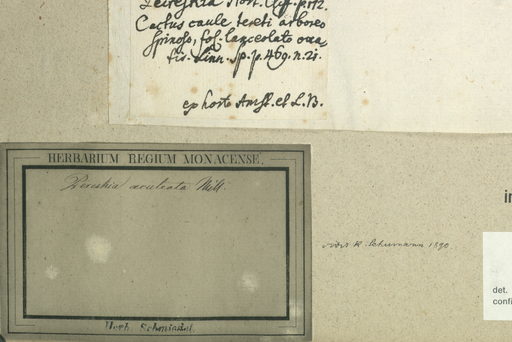 Pereskia Hort. Cliff. p. 172.
Cactus caule tereti arboreo
spinoso, fol. lanceolato ova-
tis. Linn. sp. p. 469. n. 21.
ex horto Amst. et L.B.
HERBARIUM REGIUM MONACENSE.
Pereskia aculeata Mill.
Herb. Schmiedel.
K. Schumann 1890.
det.
confi